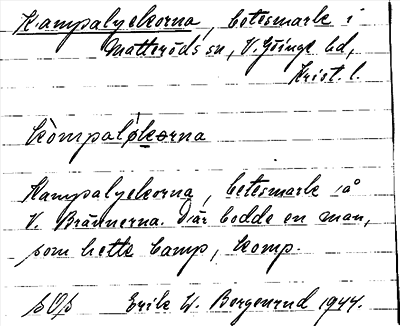 Kampalyekorna, betesmark i
Matteröds sn, V. Göinge hd,
Krist. l.
kòmpaløkorna
Kampalyekorna, betesmark på
V. Brännerna. Där bodde en man,
som hette Camp, Komp.
Erik W. Bergenrud 1944.